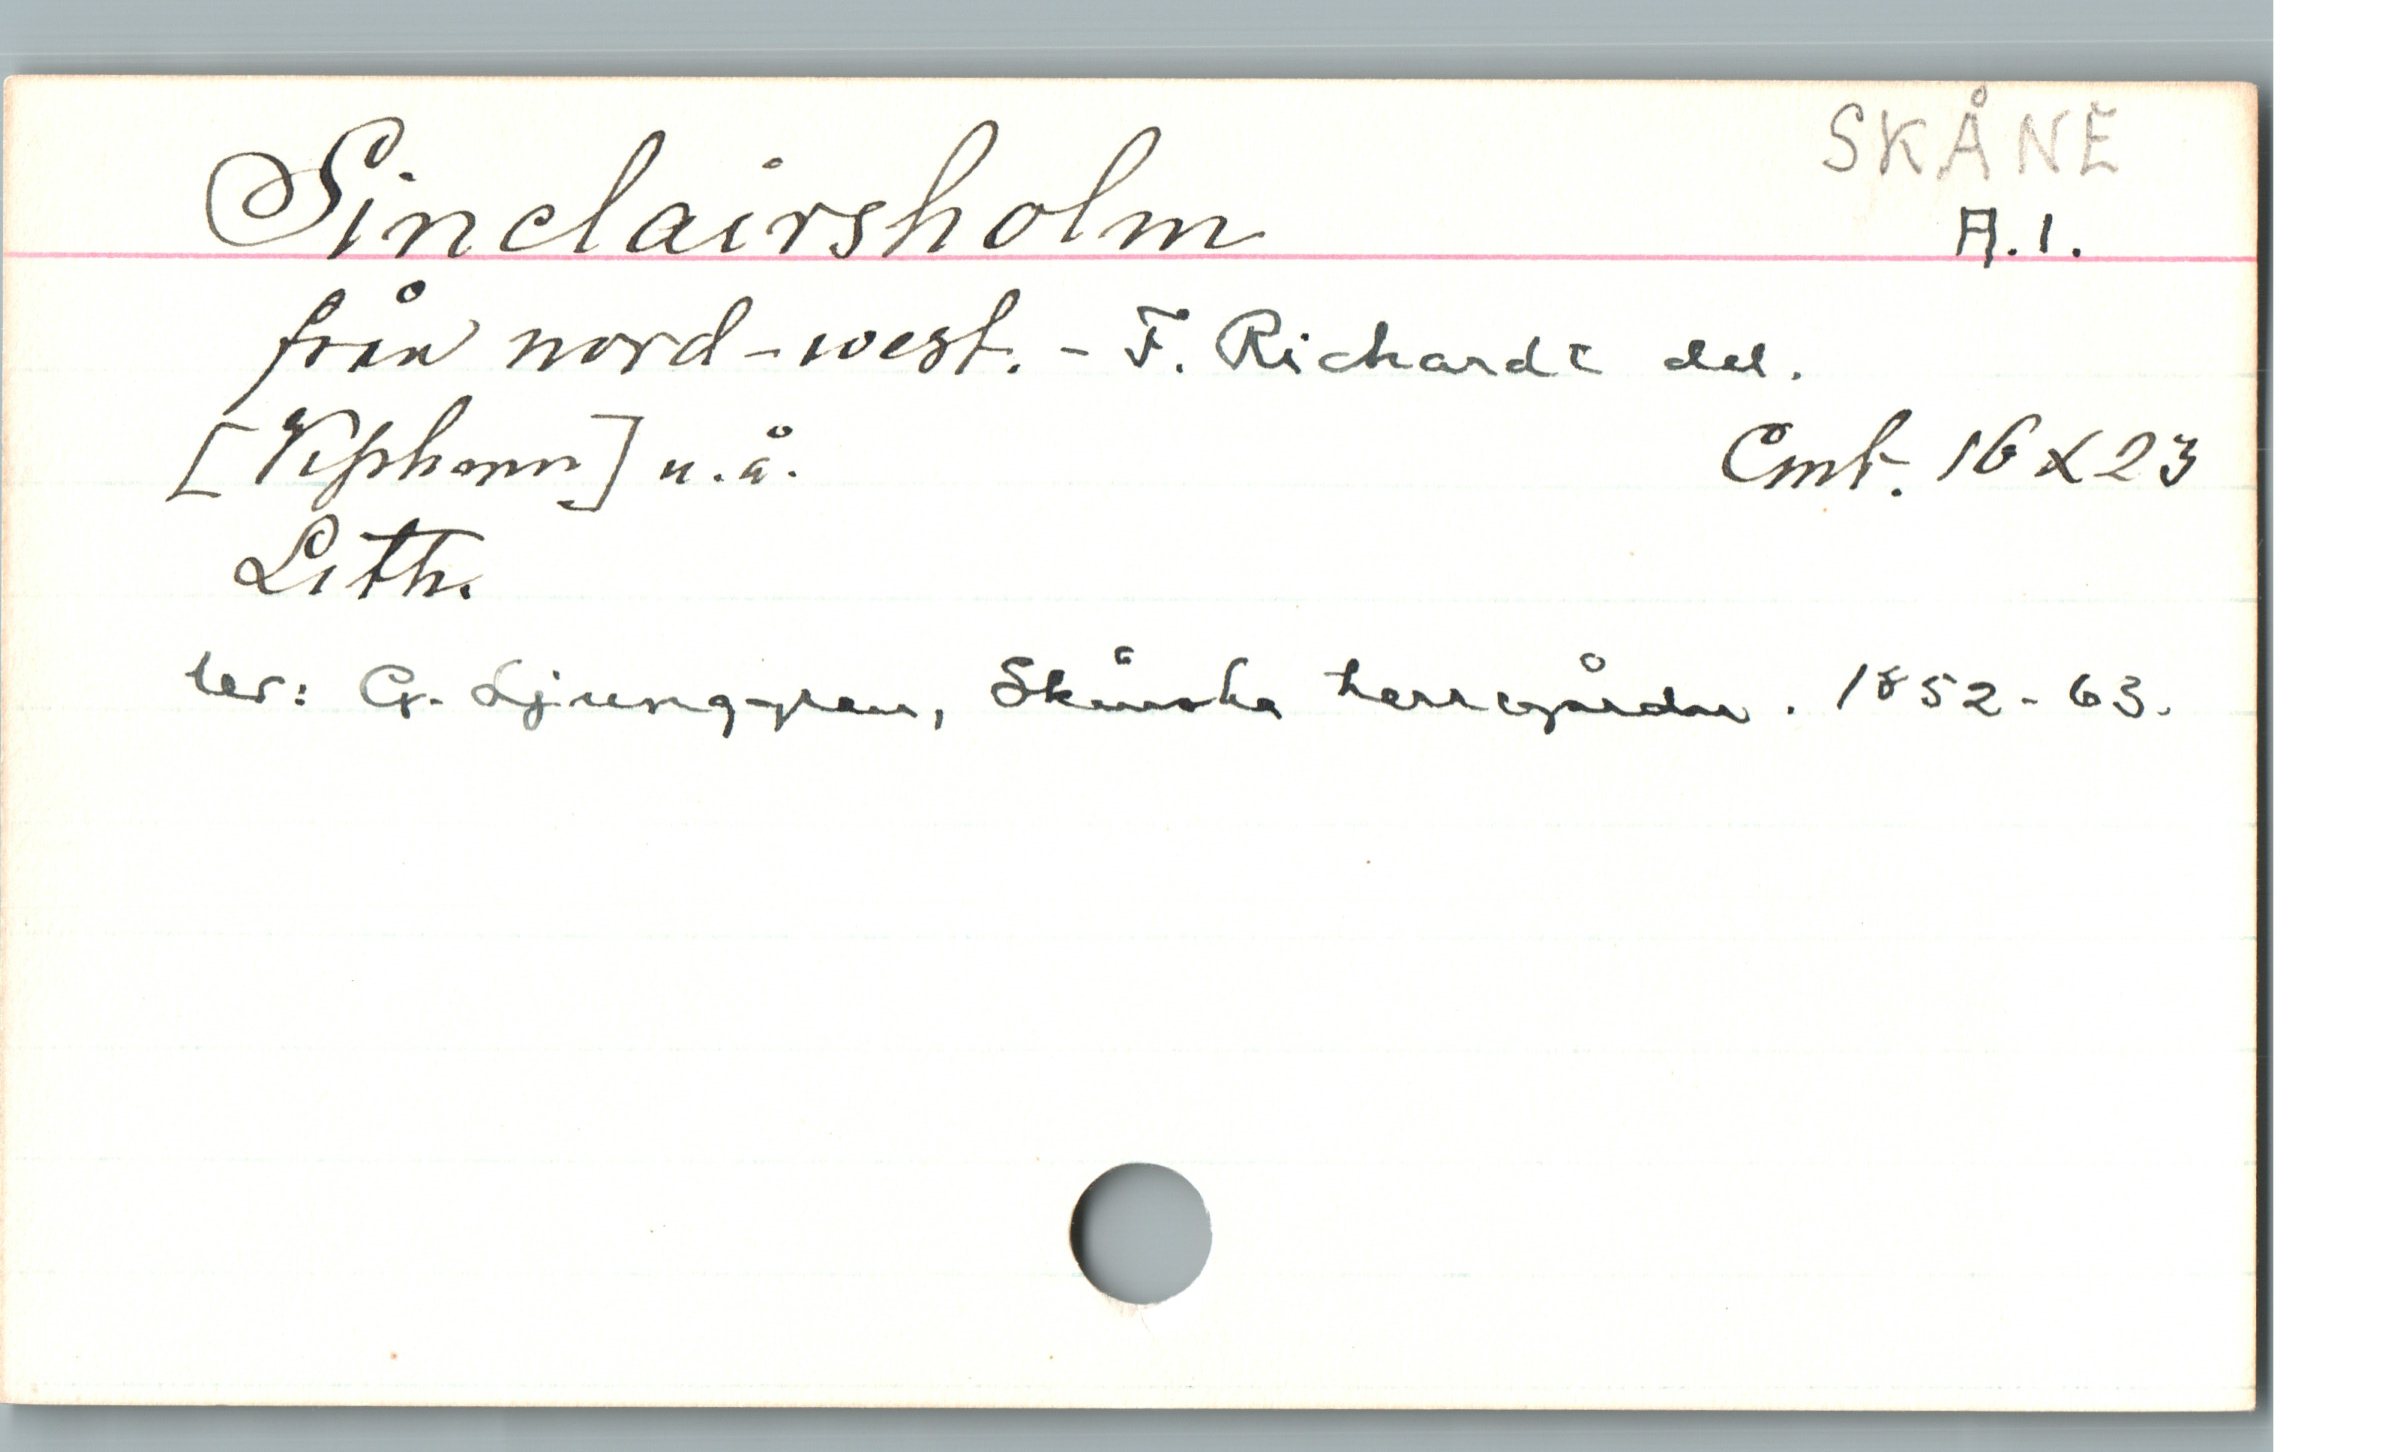 SKÅNE
Sinclairsholm
A.1.
från nord-west. - F. Richardt del.
[Kphmn] u.å. Cmt. 16 x 23
Lith.
Ur: G. Ljunggren, Skånska herregårdar. 1852-63.